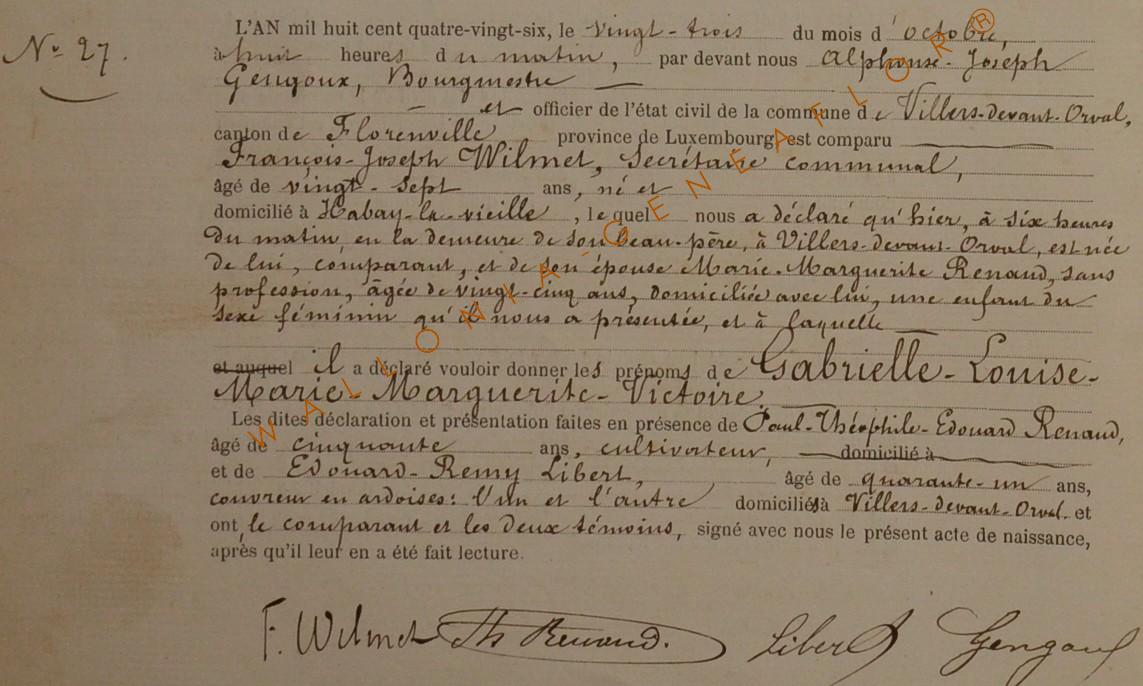 N° 27.
L'AN mil huit cent quatre-vingt-six, le vingt-trois du mois d'octobre,
à huit heures du matin, par devant nous Alphonse-Joseph
Gengoux, Bourgmestre
et officier de l'état civil de la commune de Villers-devant-Orval,
canton de Florenville province de Luxembourg est comparu
François-Joseph Wilmet, Secrétaire communal,
âgé de vingt-sept ans, né et
domicilié à Habay-la-vieille, lequel nous a déclaré qu'hier, à six heures
du matin, en la demeure de son beau-père, à Villers-devant-Orval, est née
de lui, comparant, et de son épouse Marie-Marguerite Renaud, sans
profession, âgée de vingt-cinq ans, domiciliée avec lui, une enfant du
sexe féminin qu'il nous a présentée, et à laquelle
et auquel il a déclaré vouloir donner les prénoms de Gabrielle-Louise-
Marie-Marguerite-Victoire.
Les dites déclaration et présentation faites en présence de Paul-Théophile-Edouard Renaud,
âgé de cinquante ans, cultivateur, domicilié à
et de Edouard-Remy Libert, âgé de quarante-un ans,
couvreur en ardoises: l'un et l'autre domiciliés à Villers-devant-Orval et
ont, le comparant et les deux témoins, signé avec nous le présent acte de naissance,
après qu'il leur en a été fait lecture.
F. Wilmet Th Renaud. Libert Gengoux
WALLONIA-GENEAFLOR®